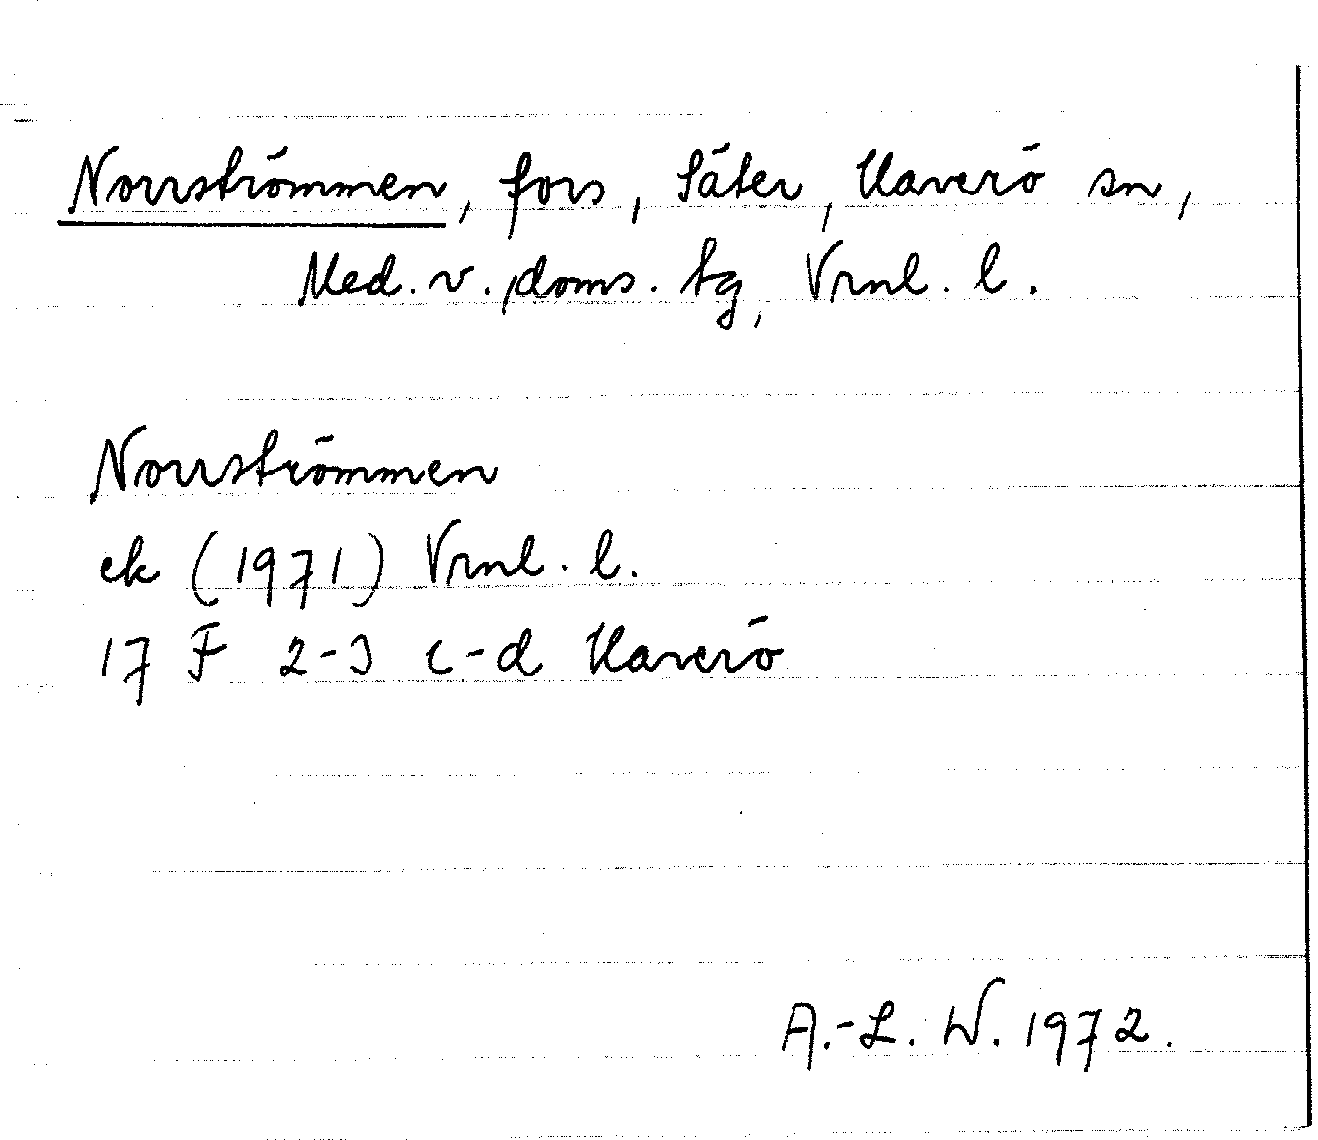 Norrströmmen, fors, Säter, Haverö sn,
Med. v. doms. tg, Vrnl. l.
Norrströmmen
ek (1971) Vrnl. l.
17 F 2-3 c-d Haverö
A.-L. W. 1972.